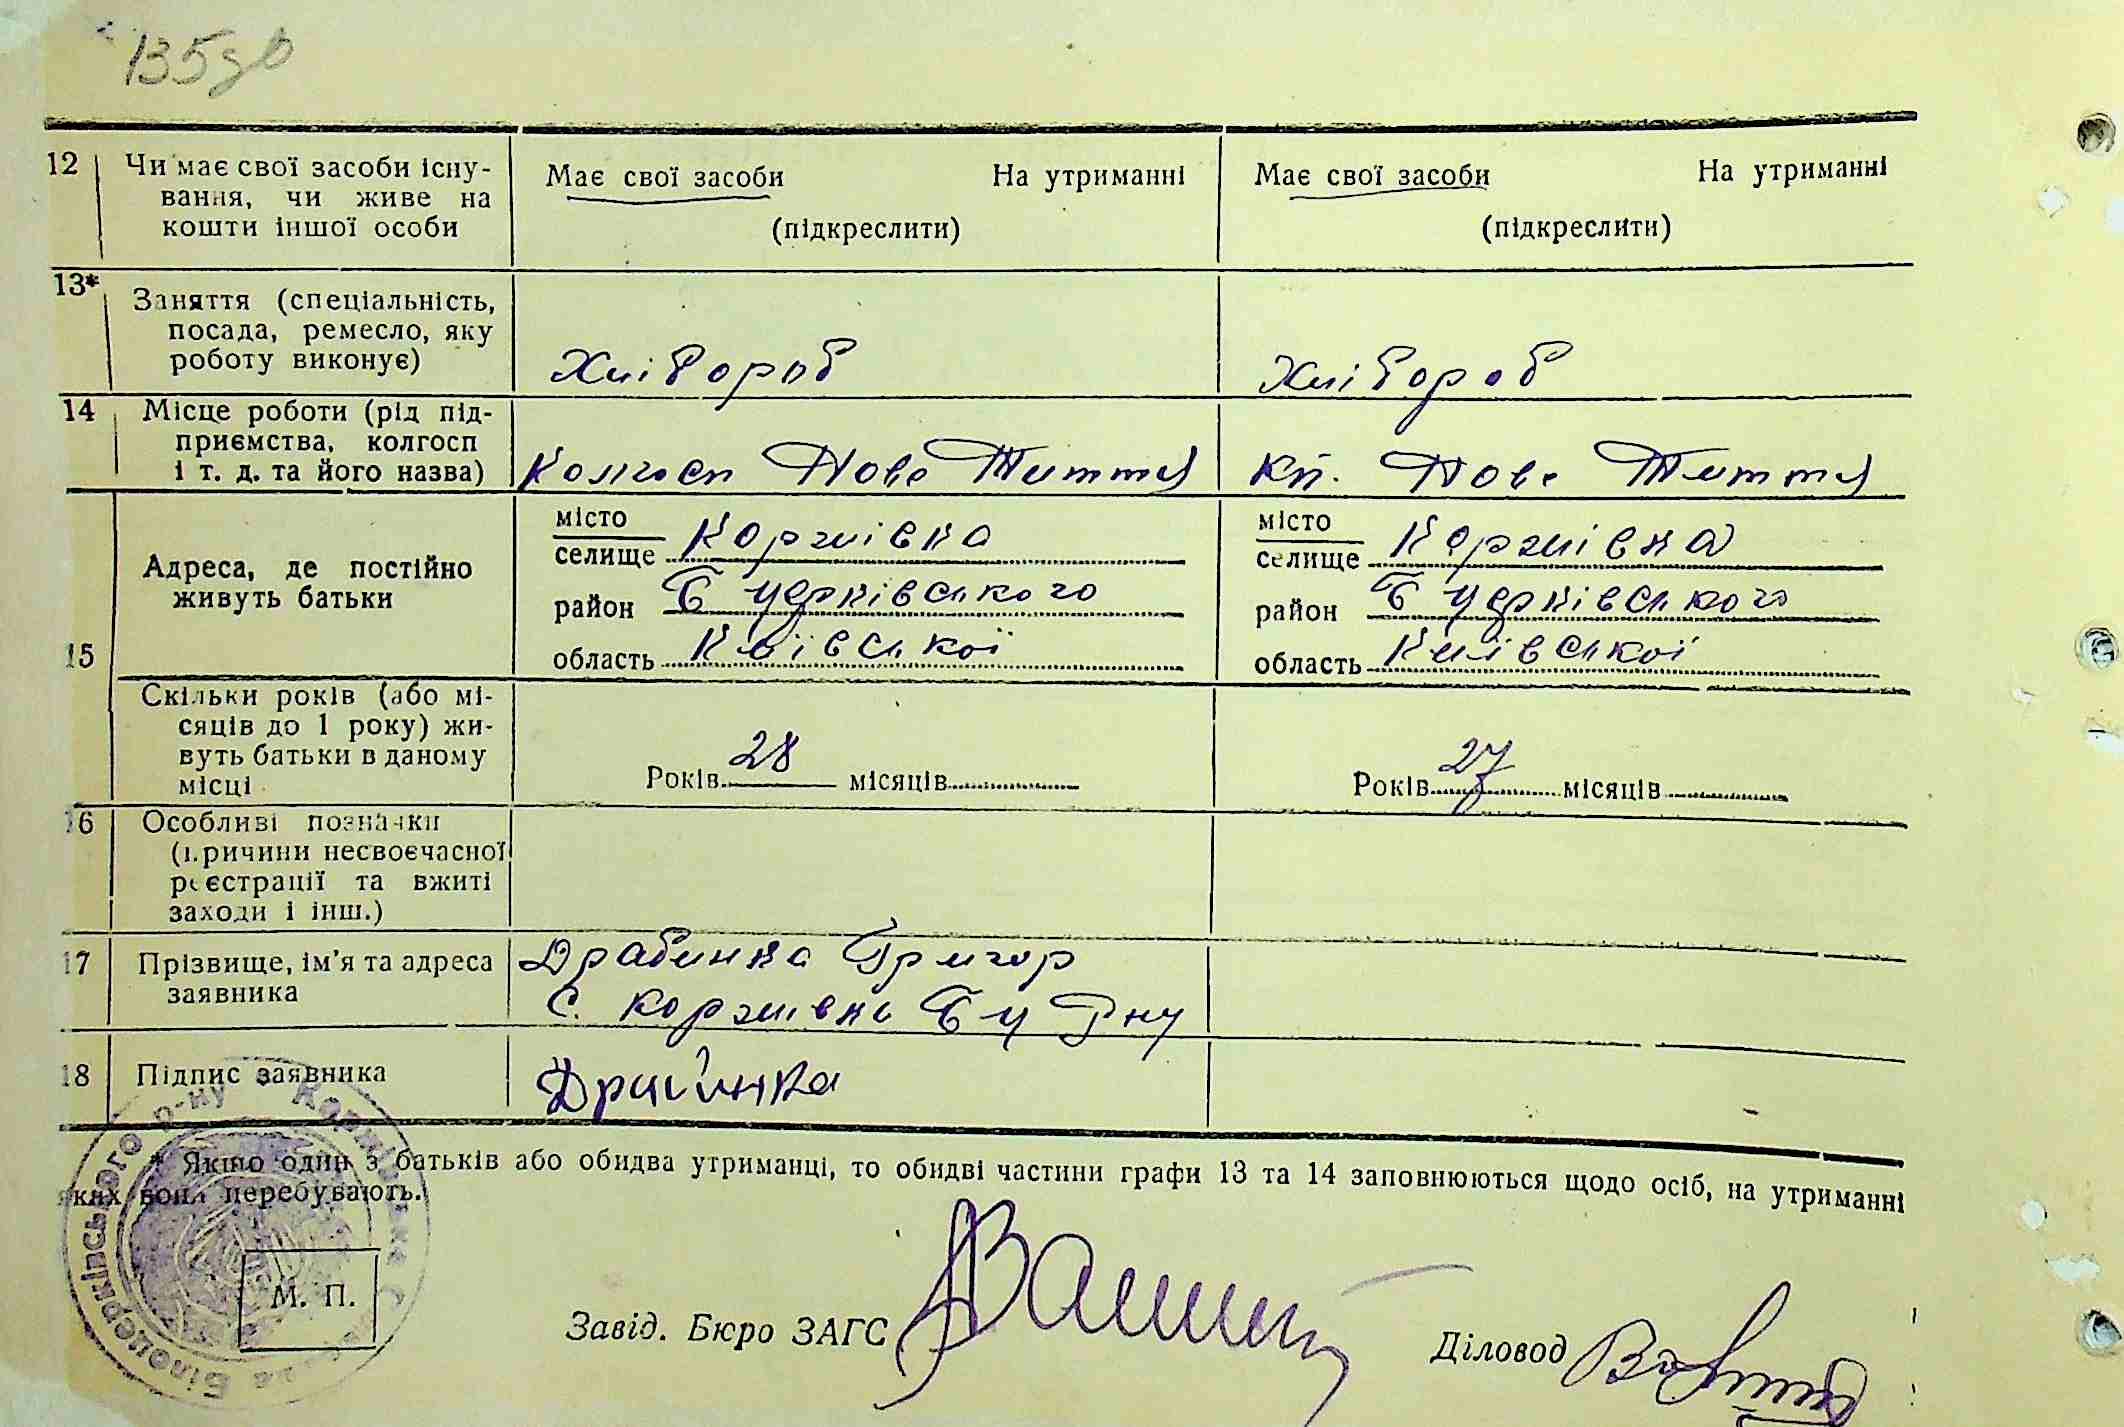 135зв
12 Чи має свої засоби існу-
вання, чи живе на
кошти іншої особи
Має свої засоби На утриманні
(підкреслити)
Має свої засоби На утриманні
(підкреслити)
13* Заняття (спеціальність,
посада, ремесло, яку
роботу виконує)
Хлібороб
Хлібороб
14 Місце роботи (рід під-
приємства, колгосп
і т. д. та його назва)
Колгосп Нове Життя
Кп. Нове Життя
15
Адреса, де постійно
живуть батьки
місто
селище Коржівка
район Б Церківського
область Київської
місто
селище Коржівка
район Б Церківського
область Київської
Скільки років (або мі-
сяців до 1 року) жи-
вуть батьки в даному
місці
Років 28 місяців
Років 27 місяців
16 Особливі позначки
(причини несвоєчасної
реєстрації та вжиті
заходи і інш.)
17 Прізвище, ім'я та адреса
заявника
Драбинка Григор
С. Коржівка Б Ц Рну
18 Підпис заявника
Драбинка
* Якщо один з батьків або обидва утриманці, то обидві частини графи 13 та 14 заповнюються щодо осіб, на утриманні
яких вони перебувають.
Білоцерківського р-ну
М. П.
Завід. Бюро ЗАГС
Діловод